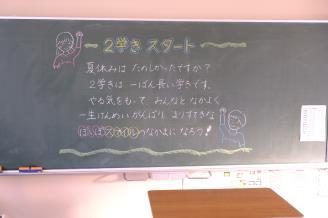 2学き スタート
夏休みは たのしかったですか?
2学きは 一ばん長い学きです。
やる気をもって みんなと なかよく
一生けんめい がんばり よりすてきな
スマイルのなかまに なろう!